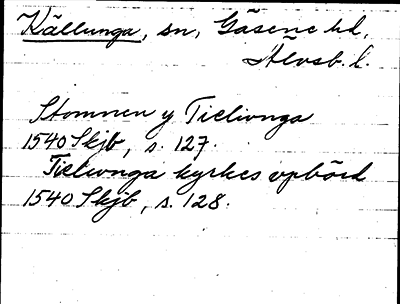 Källunga, sn, Gäsene hd,
Älvsb. l.
Stomnen y Tielivnga
1540 Skjb, s. 127.
Tielivnga kyrkes vpbörd
1540 Skjb, s. 128.